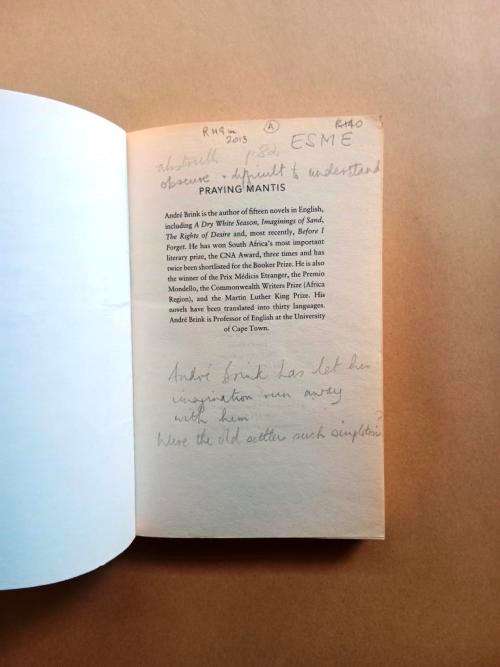 A
R40
2013
ESME
p82
obscure + difficult to understand
PRAYING MANTIS
André Brink is the author of fifteen novels in English,
including A Dry White Season, Imaginings of Sand,
The Rights of Desire and, most recently, Before I
Forget. He has won South Africa's most important
literary prize, the CNA Award, three times and has
twice been shortlisted for the Booker Prize. He is also
the winner of the Prix Médicis Etranger, the Premio
Mondello, the Commonwealth Writers Prize (Africa
Region), and the Martin Luther King Prize. His
novels have been translated into thirty languages.
André Brink is Professor of English at the University
of Cape Town.
André Brink has let his
imagination run away
with him
Were the old settlers such simpletons?